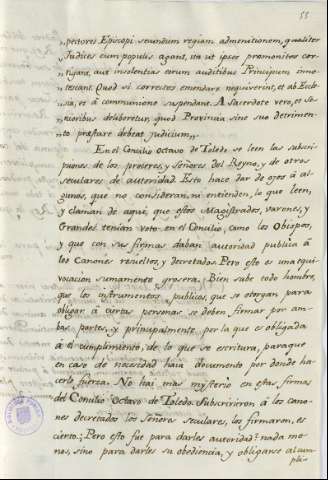 55
pectores Episcopi secundum regiam admonitionem, qualiter
Judices cum populis agant, ita ut ipsos premonitos cor-
rigant, aut insolentias eorum auditibus Principum inno-
tescant. Quod si correctos emendare nequiverint, et ab Eccle-
sia, et à communione suspendant. A Sacerdote vero, et se-
nioribus deliberetur, quod Provincia sine suo detrimen-
to prestare debeat judicium,,
En el Concilio Octavo de Toledo se leen las subscrip-
ciones de los proceres, y señores del Reyno, y de otros
seculares de autoridad. Esto hace dar de ojos à al-
gunos, que no consideran, ni entienden, lo que leen,
y claman de aquì, que estos Magistrados, varones, y
Grandes tenian voto en el Concilio, como los Obispos,
y que con sus firmas daban autoridad publica à
los Canones resueltos, y decretados. Pero esto es una equi-
vocacion sumamente grosera. Bien sabe todo hombre,
que los instrumentos publicos, que se otorgan para
obligar à ciertas personas se deben firmar por am-
bas partes, y principalmente por la que es obligada
à el cumplimiento, de lo que se escritura, paraque
en caso de necesidad haia documento por donde ha-
cerlo fuerza. No hai mas mysterio en estas firmas
del Concilio Octavo de Toledo. Subscrivieron à los cano-
nes decretados los Señores seculares, los firmaron, es
cierto; Pero esto fue para darles autoridad? nada me-
nos, sino para darles su obediencia, y obligarse al cum-
pli-